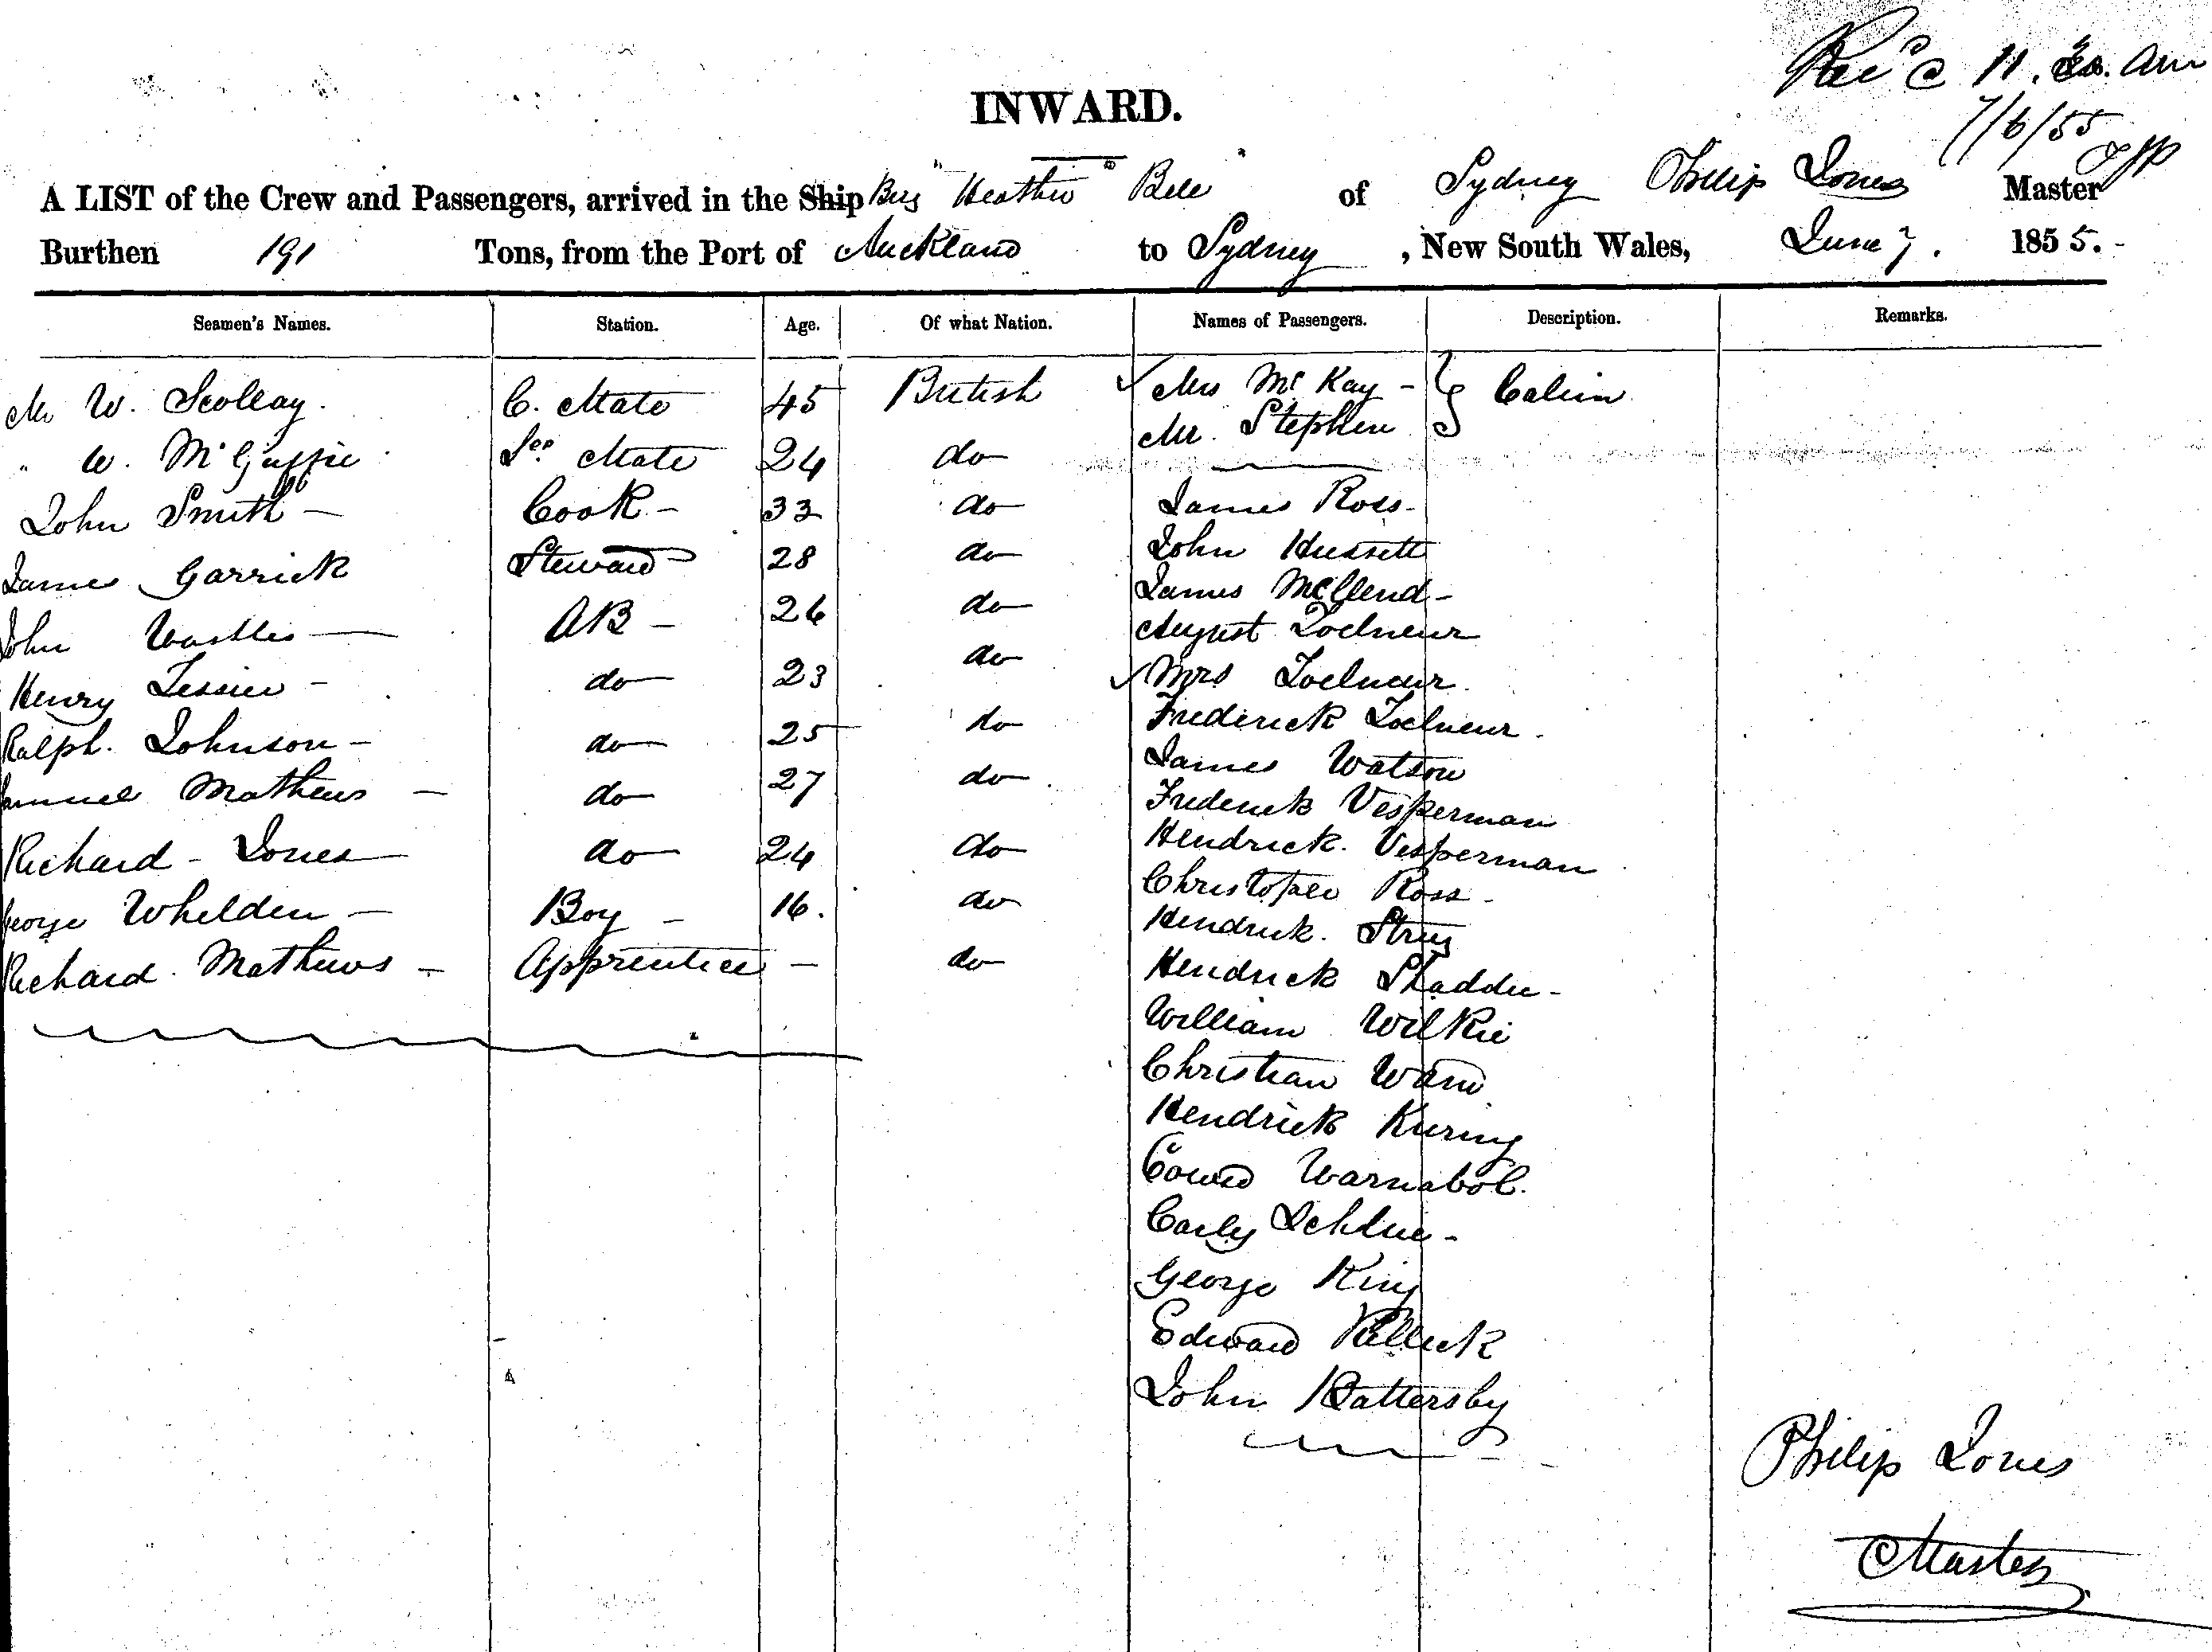 Rec'd 11. am
7/6/55
INWARD.
A LIST of the Crew and Passengers, arrived in the Ship Brig "Heather Bell" of Sydney Philip Jones Master
Burthen 191 Tons, from the Port of Auckland to Sydney, New South Wales, June 7. 1855.
Seamen's Names. Station. Age. Of what Nation. Names of Passengers. Description. Remarks.
Mr W. Scollay. C. Mate 45 British Mrs McKay - Cabin
Mr. Stephen
" W. McGuffie Sec. Mate 24 do
John Smith - Cook - 33 do James Ross -
James Garrick Steward 28 do John Hussett
John AB - 26 do James
August Zoelneur
Henry Tessier - do 23 do Mrs Zoelneur
Ralph. Johnson - do 25 do Frederick Zoelneur
Samuel Mathews - do 27 do James Watson
Frederick Vesperman
Richard - Jones do 24 do Hendrick. Vesperman
George Whelden - Boy - 16. do Christopher Ross -
Hendrick.
Richard Mathews - Apprentice - do Hendrick
William Wilkie
Christian
Hendrick Kuring
Warnabol.
Carly
George King
Edward
John Battersby
Philip Jones
Master